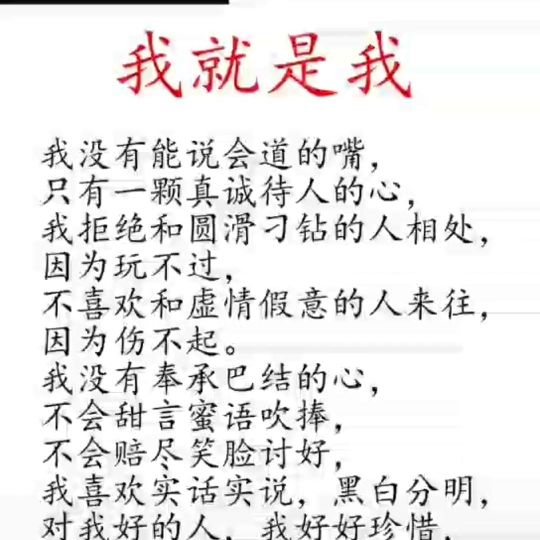 我就是我
我没有能说会道的嘴，
只有一颗真诚待人的心，
我拒绝和圆滑刁钻的人相处，
因为玩不过，
不喜欢和虚情假意的人来往，
因为伤不起。
我没有奉承巴结的心，
不会甜言蜜语吹捧，
不会赔尽笑脸讨好，
我喜欢实话实说，黑白分明，
对我好的人，我好好珍惜，